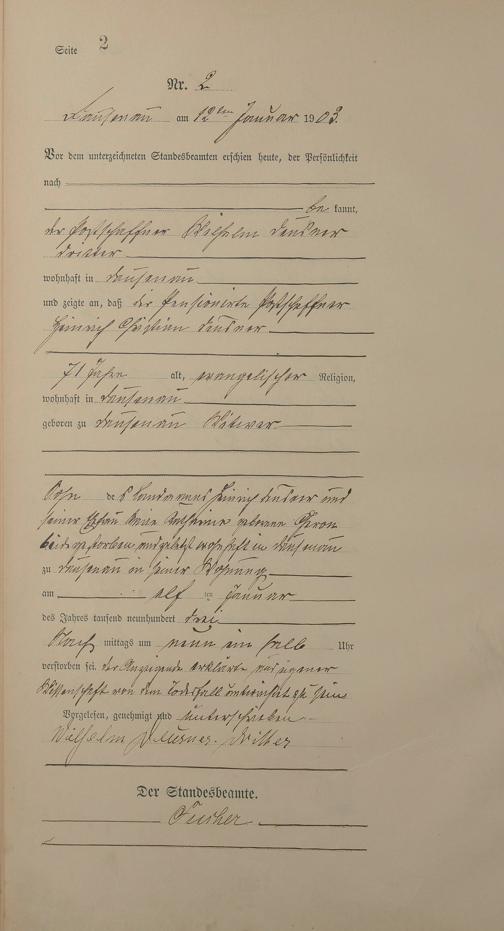 Seite 2
Nr. 2
Dausenau am 12ten Januar 1903.
Vor dem unterzeichneten Standesbeamten erschien heute, der Persönlichkeit
nach
be kannt,
der Postschaffner Wilhelm
dritter
wohnhaft in Dausenau
und zeigte an, daß der pensionierte Postschaffner
Heinrich Christian
71 Jahre alt, evangelischer Religion,
wohnhaft in Dausenau
geboren zu Dausenau Witwer
Sohn des Landmanns Heinrich und
seiner Ehefrau Katharine geborene
beide gestorben und zuletzt wohnhaft in Dausenau
zu Dausenau in seiner Wohnung
am elf ten Januar
des Jahres tausend neunhundert drei
Nach mittags um neun ein halb Uhr
verstorben sei. der Anzeigende erklärte aus eigener
Wissenschaft von dem Todesfall unterrichtet zu sein
Vorgelesen, genehmigt und unterschrieben
Wilhelm dritter
Der Standesbeamte.